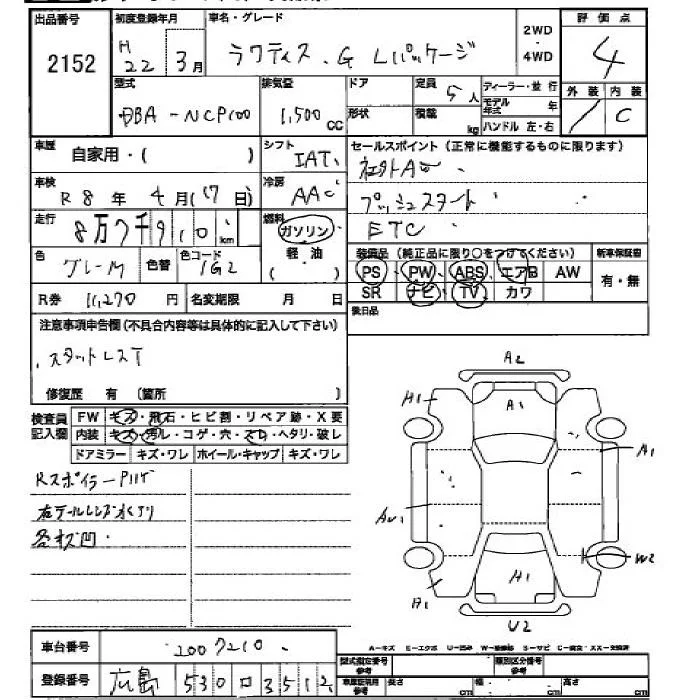 出品番号 2152
初度登録年月 H 22年 3月
車名・グレード ラクティス . G Lパッケージ
2WD ・ 4WD
評価点 4
外装 内装 C
型式 DBA - NCP100
排気量 1,500 cc
ドア 形状
定員 5人 積載 kg
ディーラー・並行
モデル年式 年
ハンドル 左・右
車歴 自家用・( )
シフト IAT
セールスポイント(正常に機能するものに限ります)
社外AW
プッシュスタート
ETC
車検 R 8年 4月(17日)
冷房 AAC
走行 8万7千910 km
燃料 ガソリン 軽油 ( )
色 グレーM 色替 色コード 1G2
装備品(純正品に限り○をつけてください) 新車保証書
PS PW ABS エアB AW 有・無
SR ナビ TV カワ
R券 11,270円 名変期限 月 日
後日品
注意事項申告欄(不具合内容等は具体的に記入して下さい)
.スタットレスT
修復歴 有 〔箇所 〕
検査員記入欄
FW キズ・飛石・ヒビ割・リペア跡・X要
内装 キズ・汚レ・コゲ・穴・スレ・ヘタリ・破レ
ドアミラー キズ・ワレ ホイール・キャップ キズ・ワレ
Rスポイラー
右テールレンズ
各枚凹
A2
A1
A1
A1
A1
W2
A1
A1
U2
A-キズ E-エクボ U-凹み S-サビ
車台番号 2007210
登録番号 広島 530 ロ 3512
型式指定番号 参考 類別区分番号 参考
長さ cm 幅 cm 高さ cm